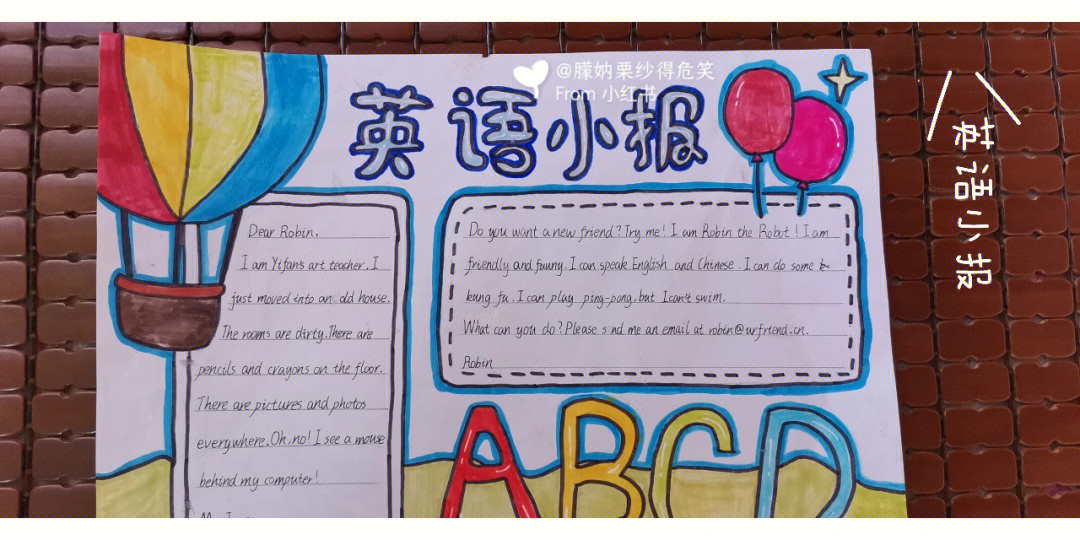 @朦妠栗纱得危笑
From 小红书
英语小报
英语小报
Dear Robin.
I am Yifan's art teacher. I
just moved into an old house.
The rooms are dirty. There are
pencils and crayons on the floor.
There are pictures and photos
everywhere. Oh, no! I see a mouse
behind my computer!
Do you want a new friend? Try me! I am Robin the Robot! I am
friendly and fuuny. I can speak English and Chinese. I can do some
kung fu. I can play ping-pong. but I can't swim.
What can you do? Please s nd me an email at robin@urfriend.cn.
Robin
ABCD